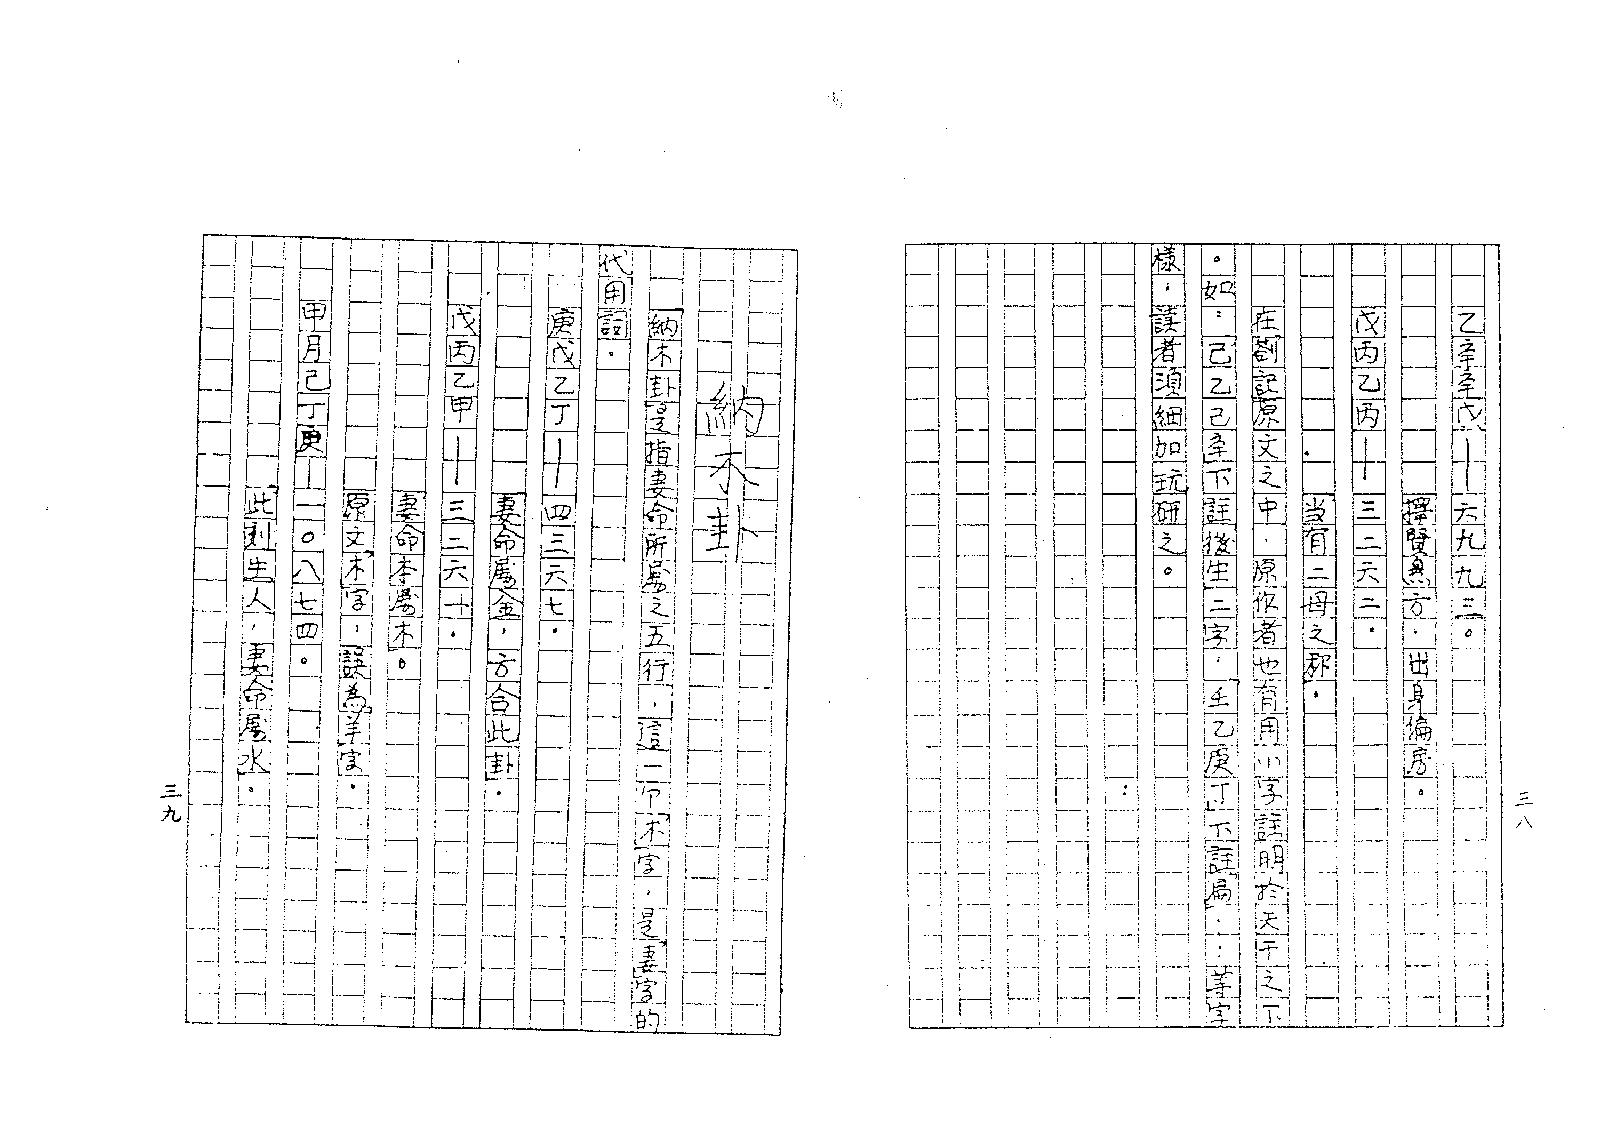 乙辛辛戊——六九九三。
擇賢無方．出身偏房。
戊丙乙丙——三二六二．
当有二母之郡．
在劄記原文之中．原作者也有用小字註明於天干之下
。如：己乙己辛下註後生二字．壬乙庚丁下註扁．．：等字
樣．讀者須細加玩研之。
三八
納木卦
納木卦是指妻命所屬之五行．這一个木字．是妻字的
代用語．
庚戊乙丁——四三六七．
妻命屬金．方合此卦．
戊丙乙甲——三二六十．
妻命本屬木。
原文木字．誤為羊字．
甲月己丁庚—一〇八七四。
此刻生人．妻命屬水．
三九